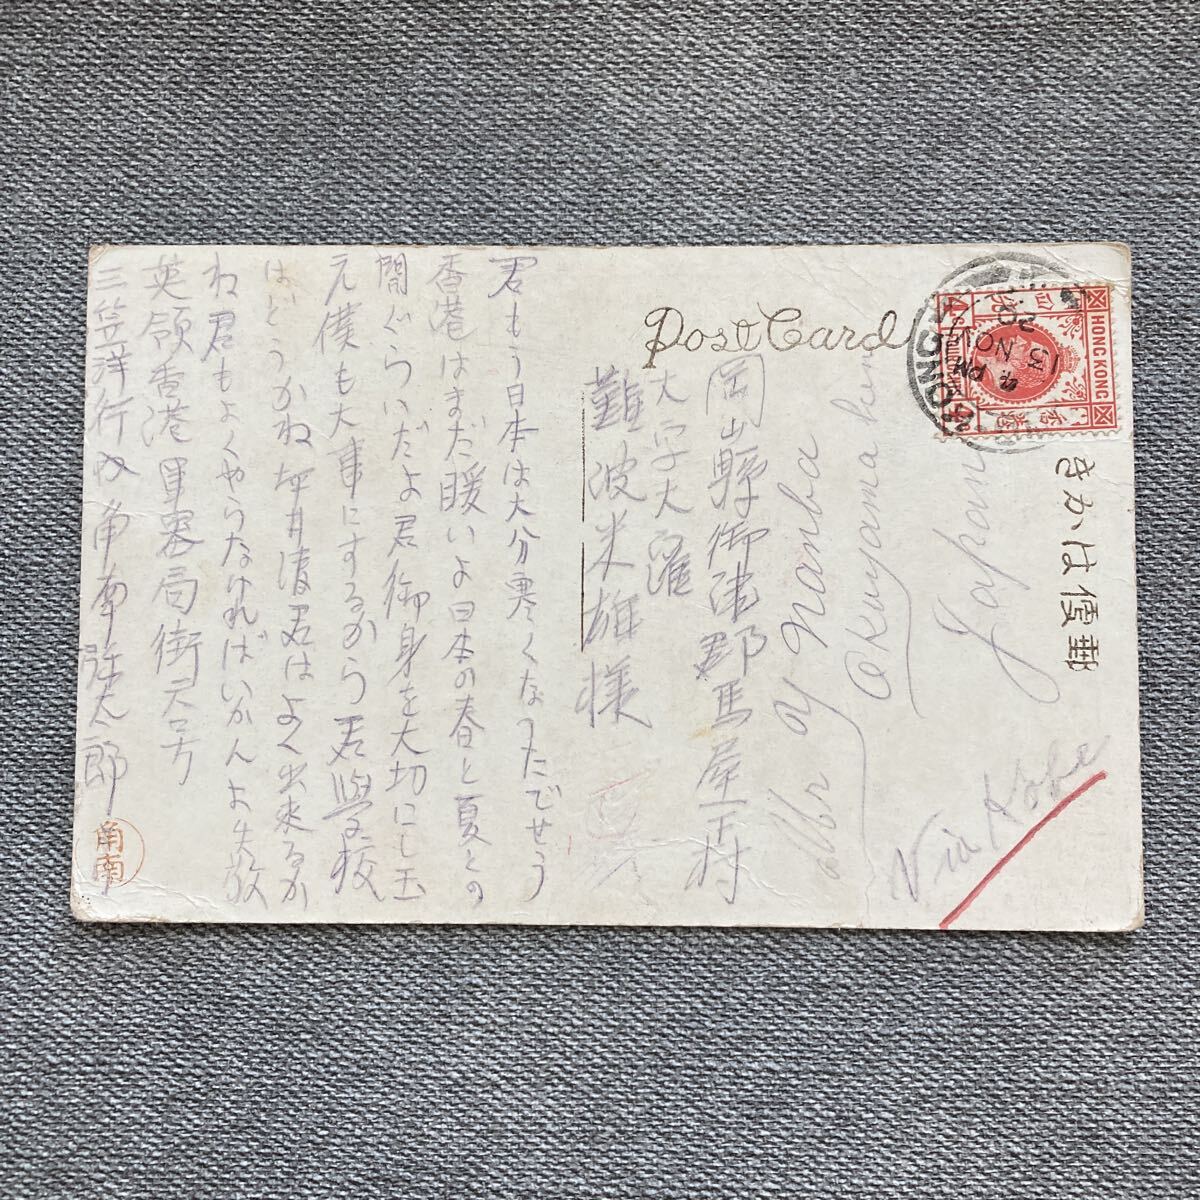 Post Card
きかは便郵
HONG KONG
HONG KONG
13
NOV
20
PM
岡山縣御津郡馬屋下村
大字大
難波米雄様
Mr Y Nanba
Okayama Ken
Japan
Via Kobe
君もう日本は大分寒くなつたでせう
香港はまだ暖いよ日本の春と夏との
間ぐらいだよ君御身を大切にし玉
え僕も大事にするから君學校
はどうかね坪井清君はよく出来るか
ね君もよくやらなければいかんよ失敬
英領香港
三笠洋行内角南 太郎
角南